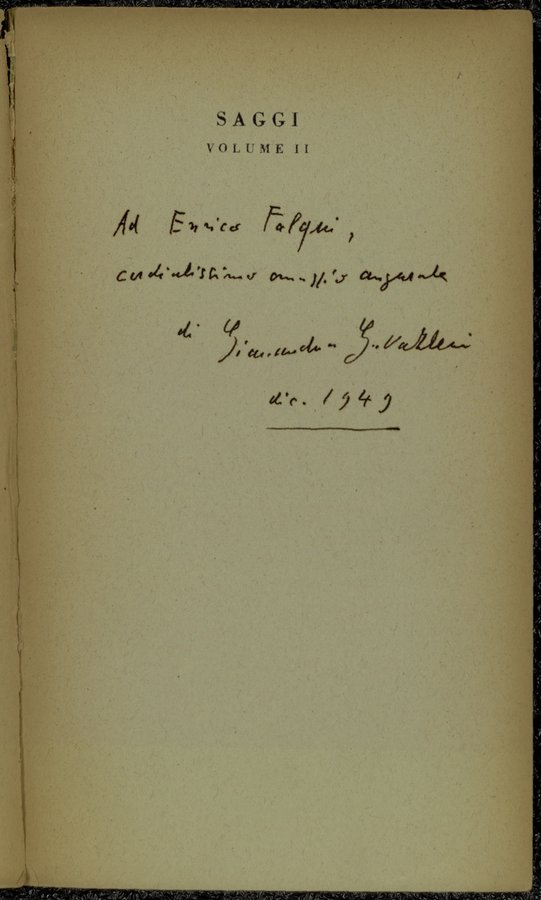 SAGGI
VOLUME II
Ad Enrico Falqui,
cordialissimo omaggio augurale
di Gianandrea Gavazzeni
dic. 1949